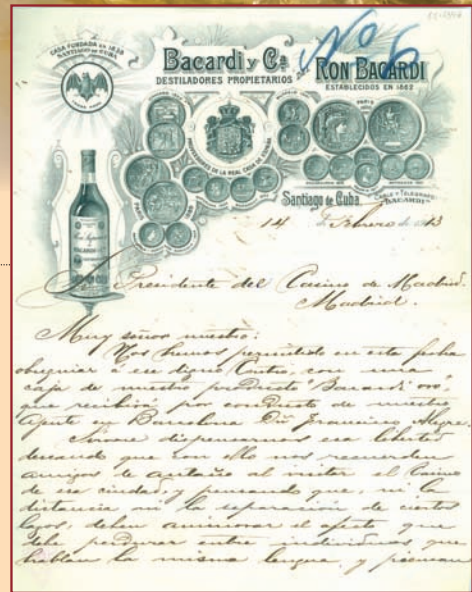 CASA FUNDADA EN 1838
SANTIAGO DE CUBA
Bacardi y Cª
DESTILADORES PROPIETARIOS
Nº 6
RON BACARDI
ESTABLECIDOS EN 1862
PROVEEDORES DE LA REAL CASA DE
PARIS
Santiago de Cuba
CABLE Y TELEGRAMAS
"BACARDI"
14 de Febrero de 1913
Sr Presidente del Casino de Madrid.
Madrid.
Muy señor nuestro:
Nos hemos permitido en esta fecha
obsequiar á ese digno Centro, con una
caja de nuestro producto "Bacardi oro",
que recibirá por conducto de nuestro
Agente en Barcelona Dn Francisco Alegre.
dispensarnos esa libertad
deseando que con ello nos recuerden
amigos de antaño al visitar el Casino
de esa ciudad, y pensando que, ni la
distancia ni la separacion de ciertos
lazos, deben aminorar el afecto que
debe perdurar entre individuos que
hablan la misma lengua, y piensan